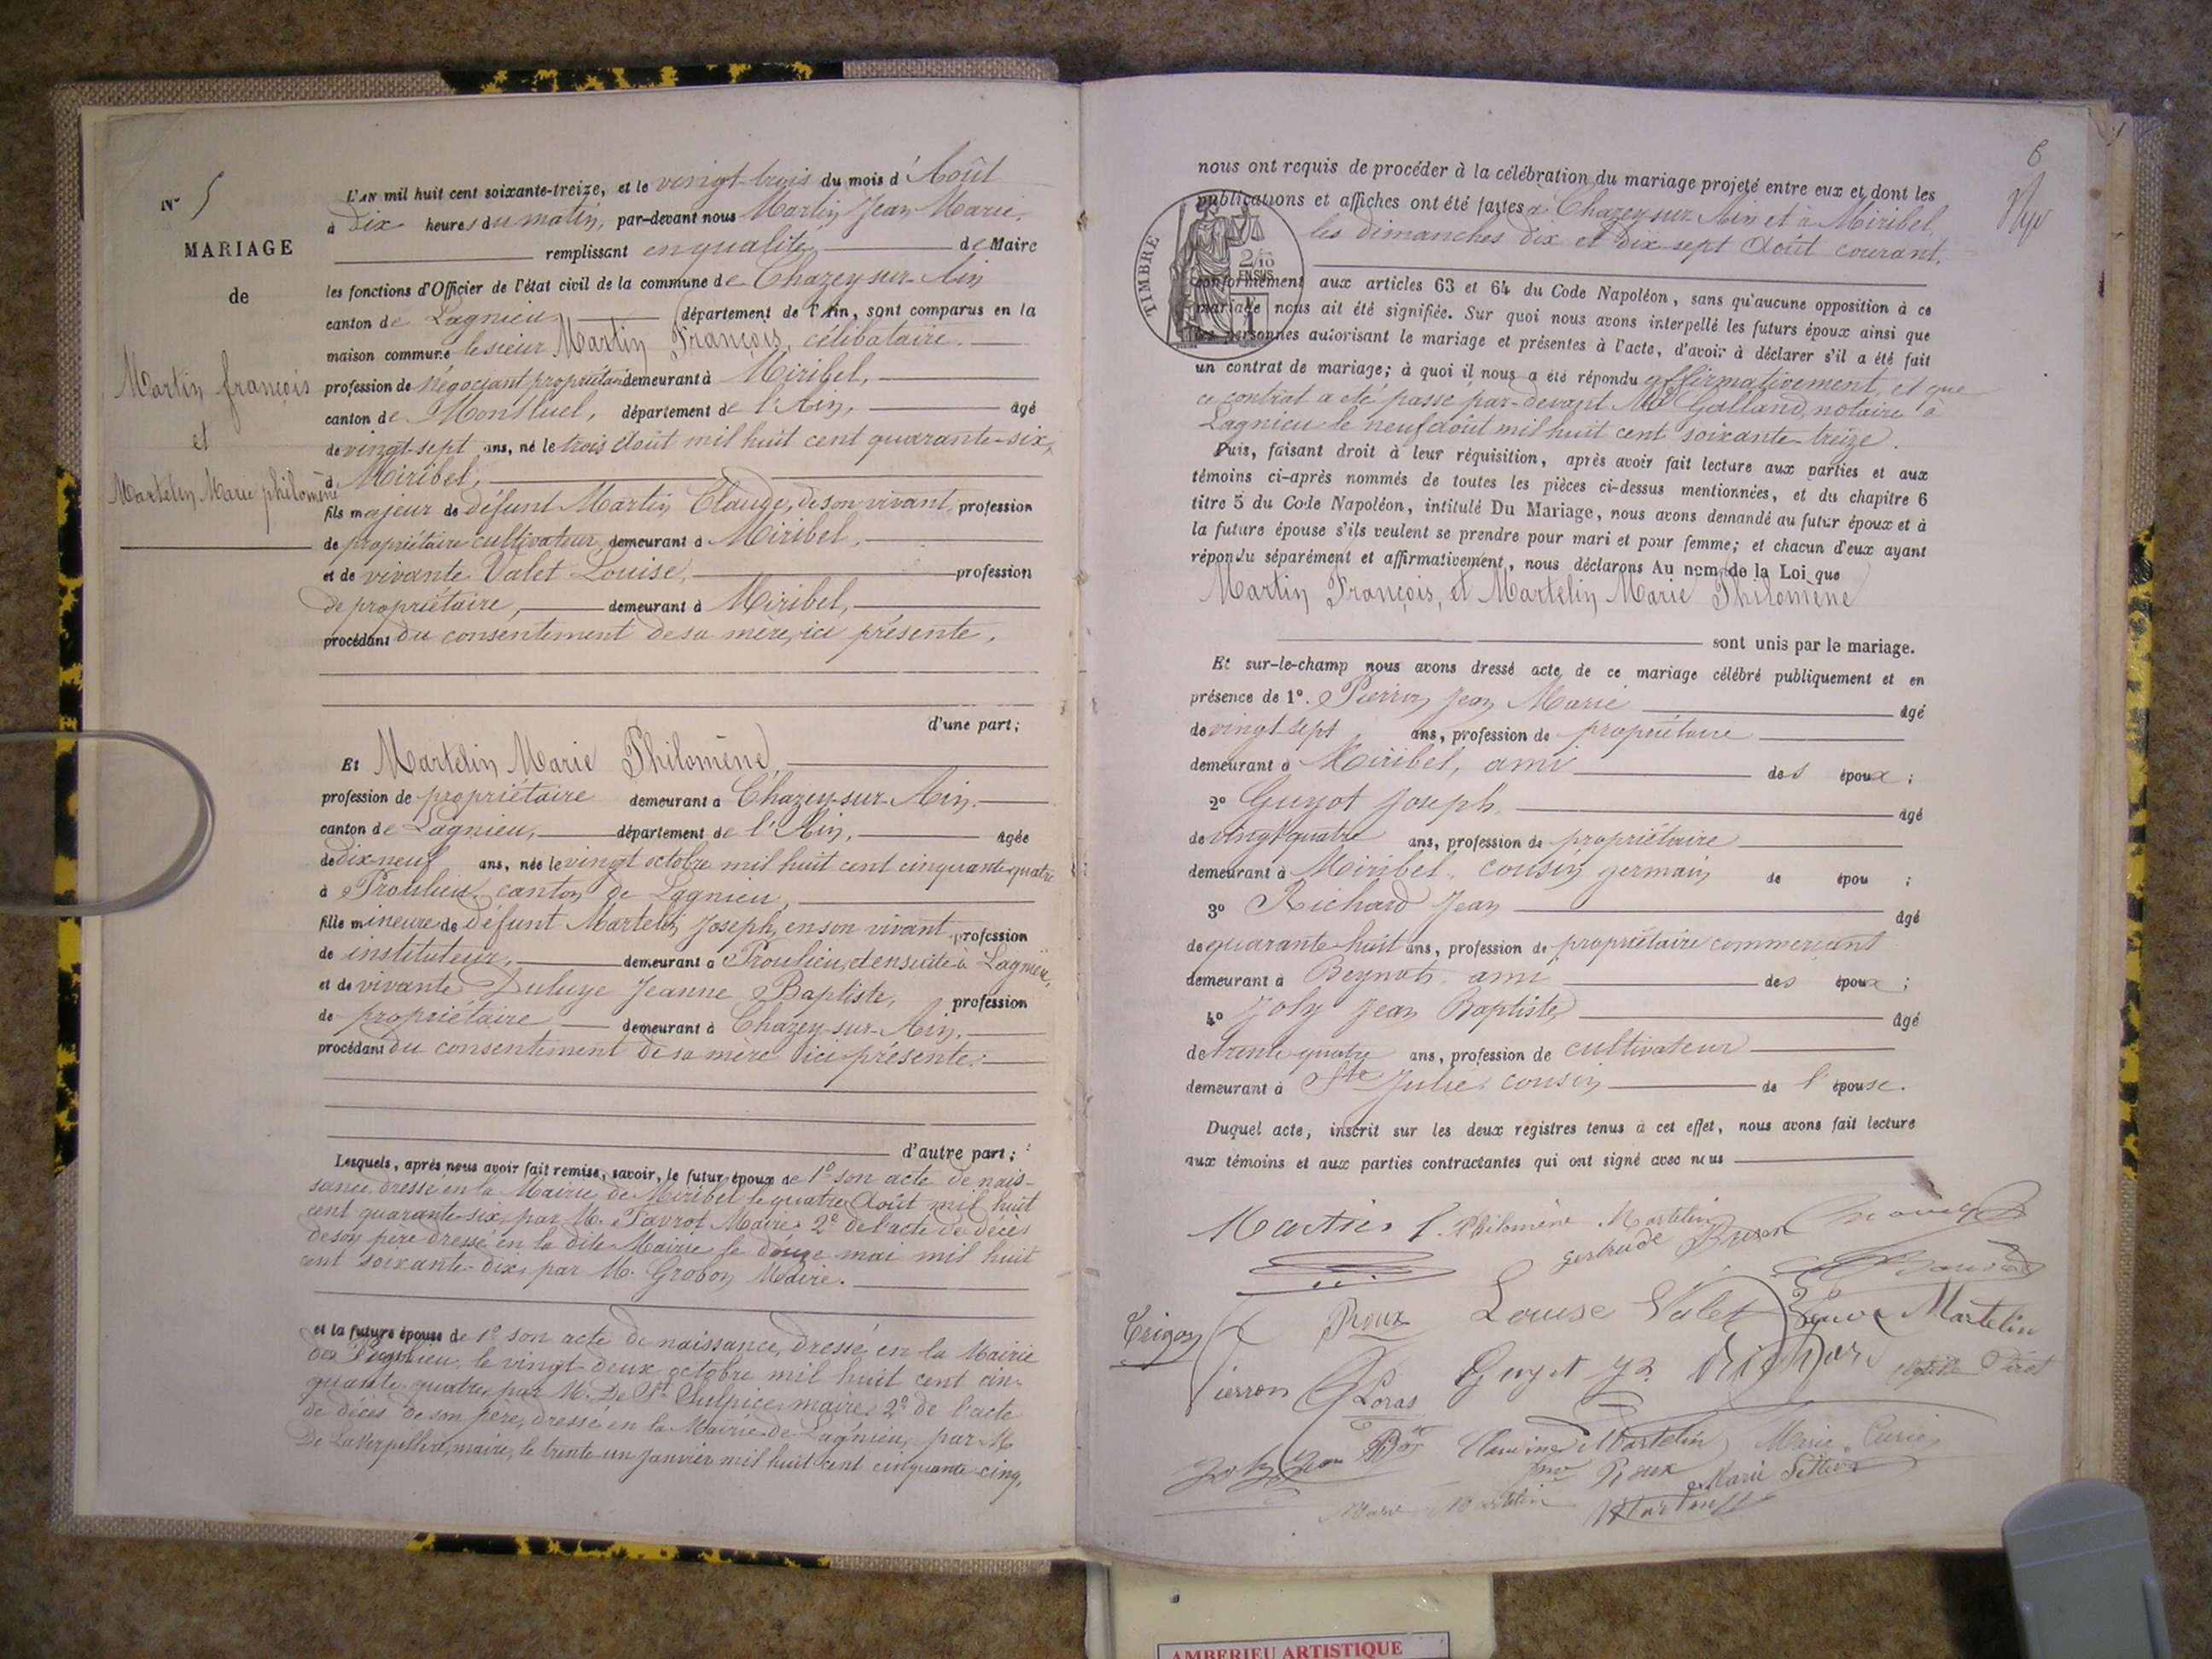 N° 5
MARIAGE
de
Martin françois
et
Martelin Marie philomène
L'AN mil huit cent soixante-treize, et le vingt-trois du mois d'Août
à dix heures du matin, par-devant nous Martin Jean Marie.
remplissant en qualité de Maire
les fonctions d'Officier de l'état civil de la commune de Chazey-sur-Ain
canton de Lagnieu département de l'Ain, sont comparus en la
maison commune le sieur Martin François, célibataire.
profession de négociant propriétaire demeurant à Miribel,
canton de Montluel, département de l'Ain, âgé
de vingt-sept ans, né le trois Août mil huit cent quarante-six,
à Miribel,
fils majeur de défunt Martin Claude, de son vivant, profession
de propriétaire cultivateur, demeurant à Miribel,
et de vivante Valet Louise, profession
de propriétaire, demeurant à Miribel,
procédant du consentement de sa mère, ici présente.
d'une part;
Et Martelin Marie Philomène
profession de propriétaire demeurant à Chazey-sur-Ain.
canton de Lagnieu, département de l'Ain, âgée
de dix-neuf ans, née le vingt octobre mil huit cent cinquante-quatre
à Proulieu, canton de Lagnieu,
fille mineure de défunt Martelin Joseph, en son vivant profession
de instituteur, demeurant à Proulieu, et ensuite à Lagnieu,
et de vivante Duluye Jeanne Baptiste, profession
de propriétaire demeurant à Chazey-sur-Ain.
procédant du consentement de sa mère ici présente.
d'autre part;
Lesquels, après nous avoir fait remise, savoir, le futur époux de 1° son acte de nais-
sance, dressé en la Mairie de Miribel le quatre Août mil huit
cent quarante-six, par M. Favrot Maire, 2° de l'acte de décès
de son père dressé en la dite Mairie le douze mai mil huit
cent soixante-dix, par M. Grobon Maire.
et la future épouse de 1° son acte de naissance, dressé en la Mairie
de Proulieu, le vingt-deux octobre mil huit cent cin-
quante-quatre, par M. De St Sulpice, maire, 2° de l'acte
de décès de son père, dressé en la Mairie de Lagnieu, par M.
De Laverpillière, maire, le trente-un Janvier mil huit cent cinquante-cinq,
6
nous ont requis de procéder à la célébration du mariage projeté entre eux et dont les
publications et affiches ont été faites à Chazey-sur-Ain et à Miribel,
les dimanches dix et dix-sept Août courant.
TIMBRE
2/10
EN SUS
conformément aux articles 63 et 64 du Code Napoléon, sans qu'aucune opposition à ce
mariage nous ait été signifiée. Sur quoi nous avons interpellé les futurs époux ainsi que
les personnes autorisant le mariage et présentes à l'acte, d'avoir à déclarer s'il a été fait
un contrat de mariage; à quoi il nous a été répondu affirmativement, et que
ce contrat a été passé par-devant Me Galland, notaire à
Lagnieu le neuf août mil huit cent soixante-treize.
Puis, faisant droit à leur réquisition, après avoir fait lecture aux parties et aux
témoins ci-après nommés de toutes les pièces ci-dessus mentionnées, et du chapitre 6
titre 5 du Code Napoléon, intitulé Du Mariage, nous avons demandé au futur époux et à
la future épouse s'ils veulent se prendre pour mari et pour femme; et chacun d'eux ayant
répondu séparément et affirmativement, nous déclarons Au nom de la Loi que
Martin François, et Martelin Marie Philomène
sont unis par le mariage.
Et sur-le-champ nous avons dressé acte de ce mariage célébré publiquement et en
présence de 1°. Pierron Jean Marie âgé
de vingt-sept ans, profession de propriétaire
demeurant à Miribel, ami des époux;
2° Guyot Joseph âgé
de vingt-quatre ans, profession de propriétaire
demeurant à Miribel, cousin germain de épou ;
3° Richard Jean âgé
de quarante-huit ans, profession de propriétaire commerçant
demeurant à Beynost, ami des époux;
4° Joly Jean Baptiste âgé
de trente-quatre ans, profession de cultivateur
demeurant à Ste Julie, cousin de l'épouse.
Duquel acte, inscrit sur les deux registres tenus à cet effet, nous avons fait lecture
aux témoins et aux parties contractantes qui ont signé avec nous
Martin f. Philomène Martelin
gertrude
Trigon Roux Louise Valet Veuve Martelin
Pierron Loras Guyot Richard
Joly Jean Bte Claudine Martelin Marie Curie
Roux Marie
Marie Martelin
AMBERIEU ARTISTIQUE